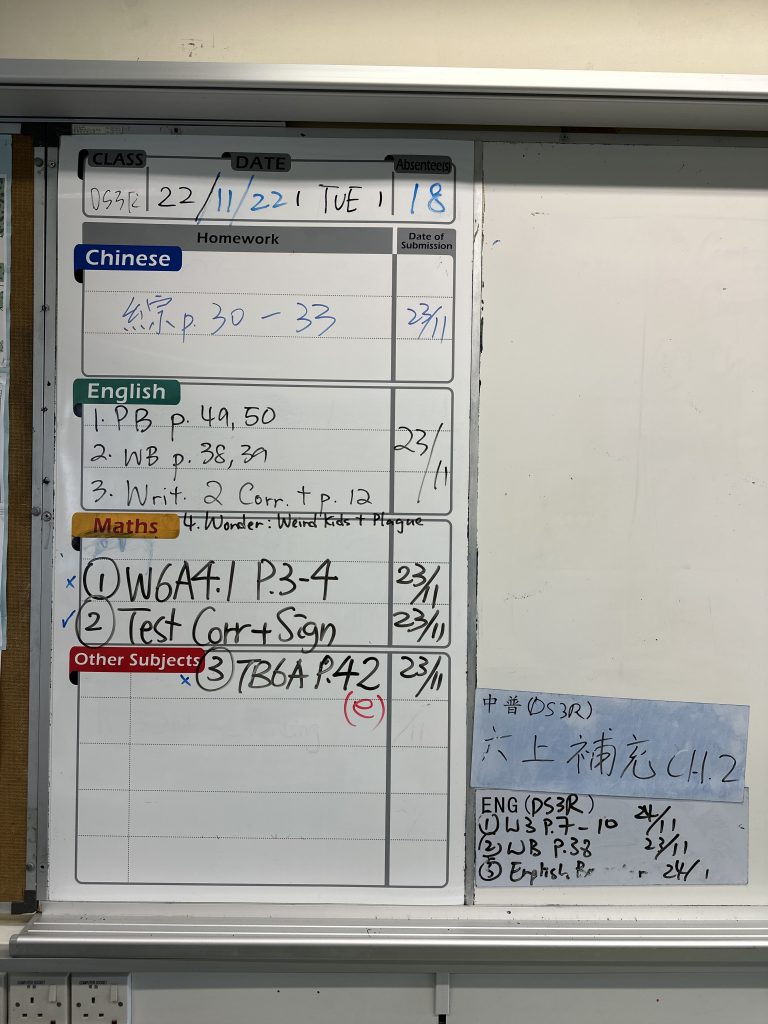 CLASS DATE Absentee(s)
DS3R 22/11/22, TUE, 18
Homework Date of Submission
Chinese
綜 p. 30 - 33 23/11
English
1. PB p. 49, 50
2. WB p. 38, 39 23/11
3. Writ. 2 Corr. + p. 12
Maths 4. Wonder: Weird Kids + Plague
x ① W6A4.1 P.3-4 23/11
✓ ② Test Corr + Sign 23/11
Other Subjects x ③ TB6A P.42 23/11
(e)
中普(DS3R)
六上補充 CH.2
ENG (DS3R)
① W3 P.7-10 24/11
② WB P.38 23/11
③ English 24/1
COMPUTER SOCKET COMPUTER SOCKET